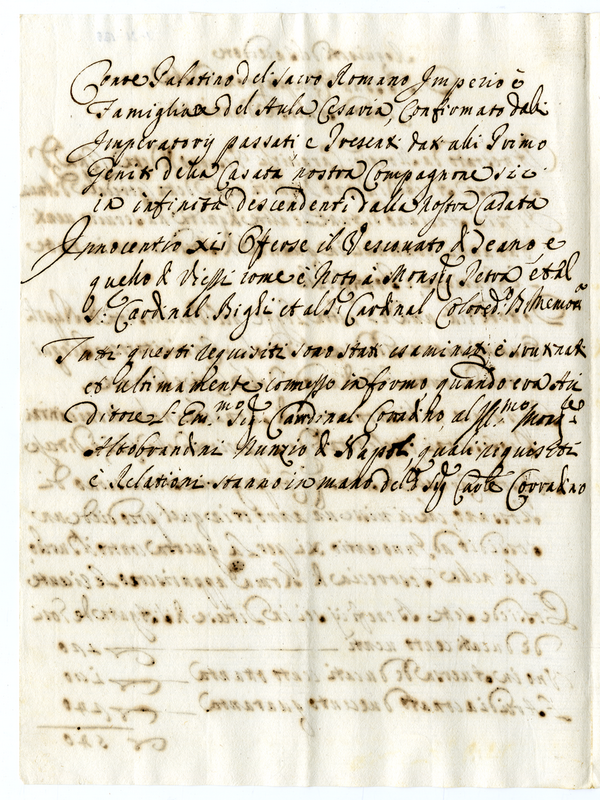 Conte Palatino del Sacro Romano Imperio è
Famigliare del Aula Cesaria, Confirmato dalli
Imperatorij passati e Presenti dati alli Primo
Geniti della Casata nostra Compagnone sic
in infinitū descendenti dalla nostra Casata
Innocentio xii Offerse il Vescovato di Teano, e
quello di Viesti come è Noto à Monsig. Petra et al
S. Cardinal Bighi et al S. Cardinal Colored.º B. Memoria
Tutti questi requisiti sono stati esaminati è scrutinati
et ultimamente comesso informo quando era Au
ditore l'Em.mo Sig. Cardinal Corradino, al Ill.mo Mons.
Aldobrandini Nunzio di Napoli, quali riquisiti
è Relationi stanno in mano dell' Sig. Card.le Corradino